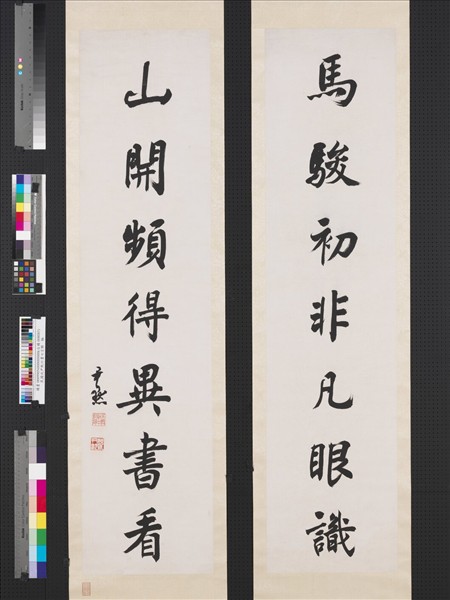 馬駿初非凡眼識
山開頻得異書看